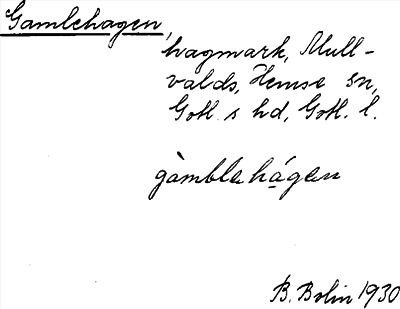 Gamlehagen,
hagmark, Mull-
valds, Hemse sn,
Gotl. s hd, Gotl. l.
gàmblahágan
B. Bolin 1930